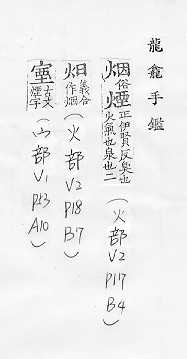 龍龕手鑑
烟俗煙正伊賢反臭也火氣也臭也二(火部V2P17B4)
畑義合作烟(火部V2P18B7)
古文煙字(宀部V1P53A10)